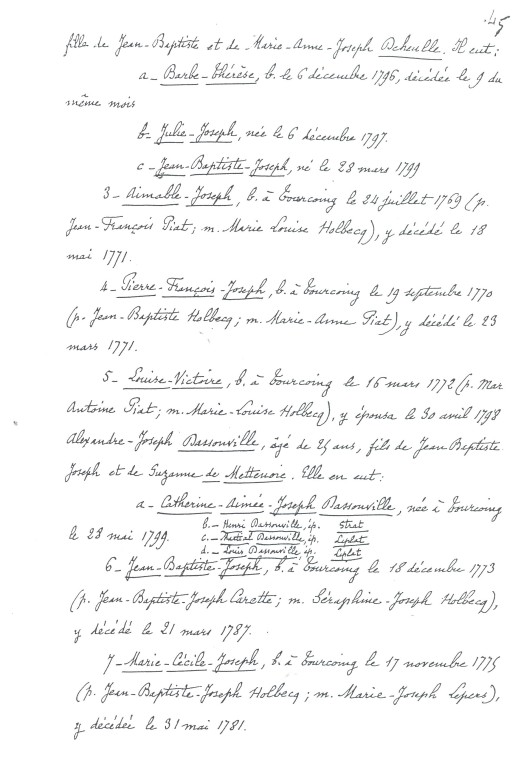 45
fille de Jean-Baptiste et de Marie-Anne-Joseph Deheulle. Il eut:
a- Barbe-Thérèse, b. le 6 décembre 1796, décédée le 9 du
même mois
b- Julie-Joseph, née le 6 décembre 1797.
c- Jean-Baptiste-Joseph, né le 28 mars 1799
3- Aimable-Joseph, b. à Tourcoing le 24 juillet 1769 (p.
Jean-François Piat; m. Marie Louise Holbecq), y décédé le 18
mai 1771.
4- Pierre-François-Joseph, b. à Tourcoing le 19 septembre 1770
(p. Jean-Baptiste Holbecq; m. Marie-Anne Piat), y décédé le 23
mars 1771.
5- Louise-Victoire, b. à Tourcoing le 16 mars 1772 (p. Mar
Antoine Piat; m. Marie-Louise Holbecq), y épousa le 30 avril 1798
Alexandre-Joseph Dassonville, âgé de 25 ans, fils de Jean Baptiste
Joseph et de Suzanne de Mettenoie. Elle en eut:
a- Catherine-Aimée-Joseph Dassonville, née à Tourcoing
le 28 mai 1799.
b.- Henri Dassonville, ép. Strat
c.- Martial Dassonville, ép. Leplat
d.- Louis Dassonville, ép. Leplat
6- Jean-Baptiste-Joseph, b. à Tourcoing le 18 décembre 1773
(p. Jean-Baptiste-Joseph Carette; m. Séraphine-Joseph Holbecq),
y décédé le 21 mars 1787.
7- Marie-Cécile-Joseph, b. à Tourcoing le 17 novembre 1775
(p. Jean-Baptiste-Joseph Holbecq; m. Marie-Joseph Lepers),
y décédée le 31 mai 1781.